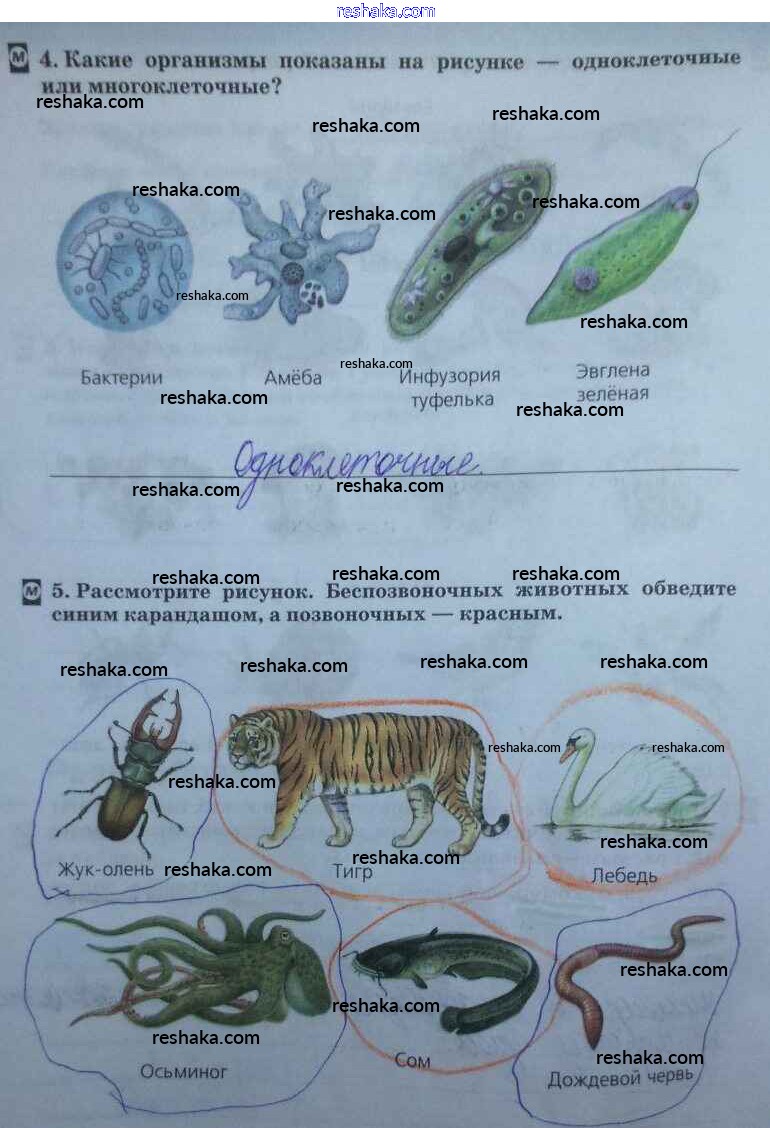 reshaka.com
М 4. Какие организмы показаны на рисунке — одноклеточные
или многоклеточные?
reshaka.com
reshaka.com
reshaka.com
reshaka.com
reshaka.com
reshaka.com
reshaka.com
reshaka.com
reshaka.com
Бактерии
Амёба
Инфузория
туфелька
Эвглена
зелёная
reshaka.com
reshaka.com
Одноклеточные.
reshaka.com
reshaka.com
reshaka.com
reshaka.com
reshaka.com
М 5. Рассмотрите рисунок. Беспозвоночных животных обведите
синим карандашом, а позвоночных — красным.
reshaka.com
reshaka.com
reshaka.com
reshaka.com
reshaka.com
reshaka.com
reshaka.com
reshaka.com
reshaka.com
reshaka.com
Жук-олень
Тигр
Лебедь
reshaka.com
reshaka.com
reshaka.com
reshaka.com
Осьминог
Сом
Дождевой червь